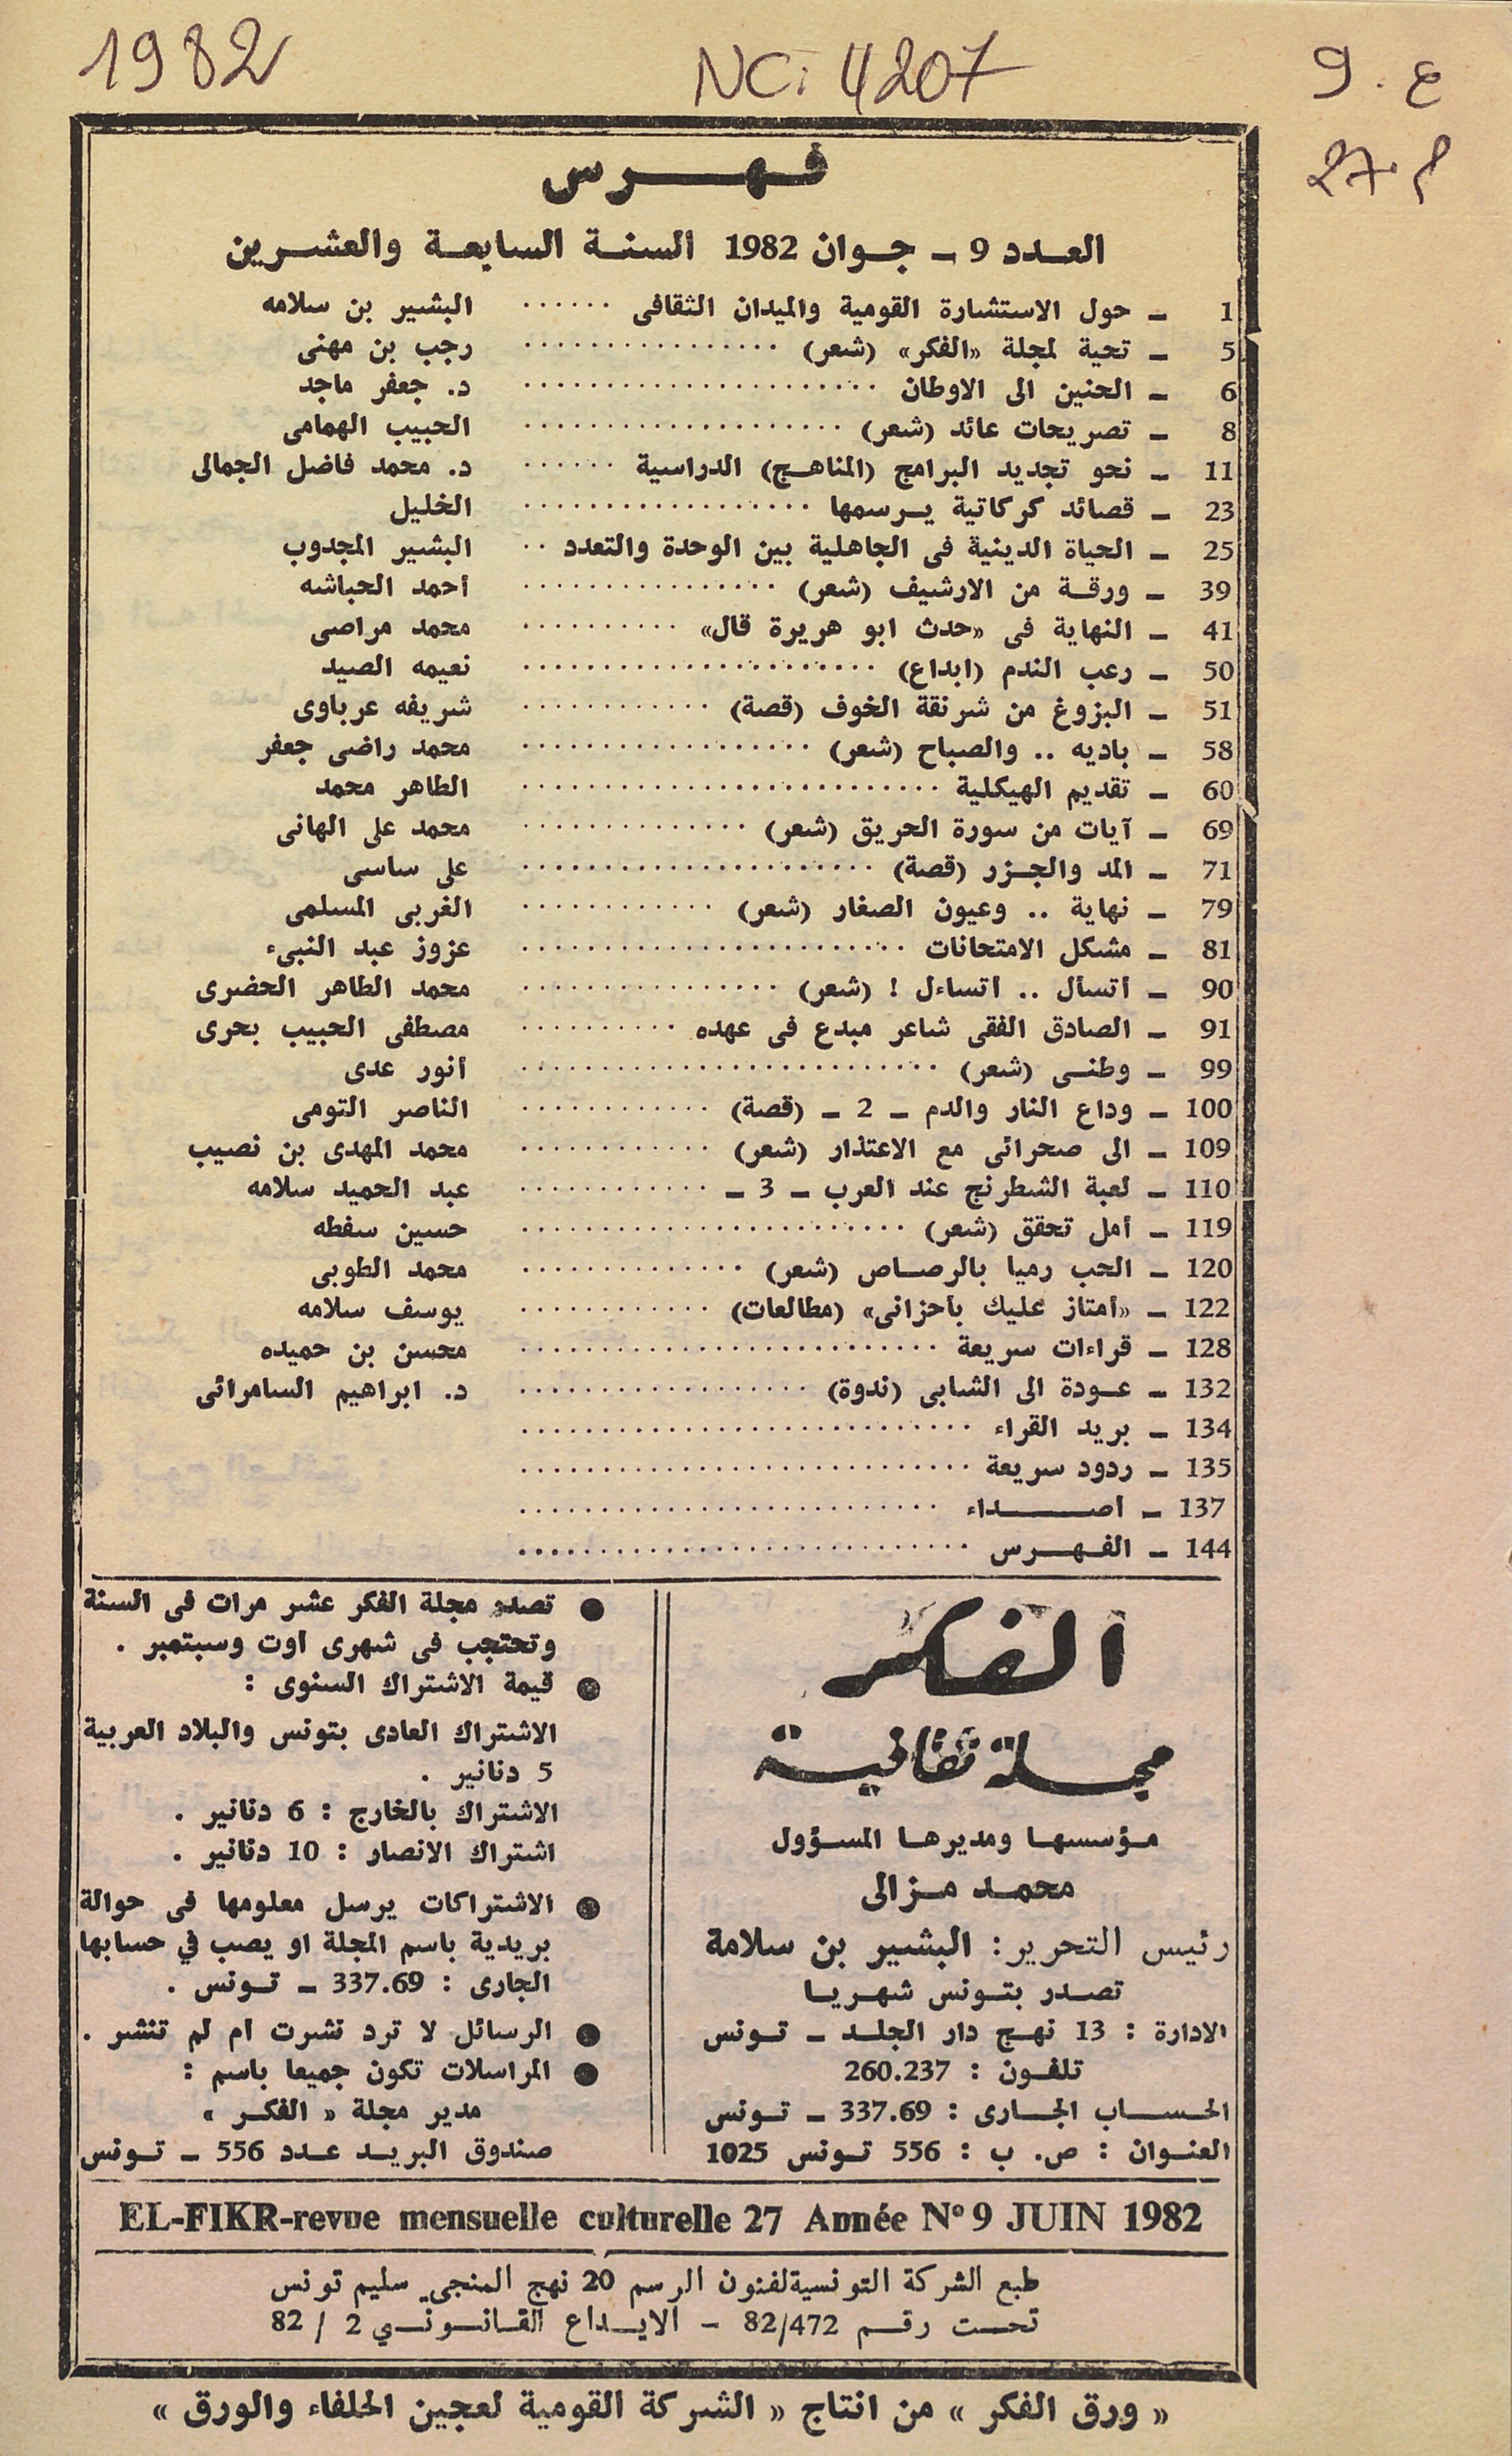 1982
NCi 4207
ع . 9
م . 27
فهرس
العدد 9 ـ جوان 1982 السنة السابعة والعشرين
1 ـ حول الاستشارة القومية والميدان الثقافى ...... البشير بن سلامه
5 ـ تحية لمجلة «الفكر» (شعر) ................ رجب بن مهنى
6 ـ الحنين الى الاوطان ...................... د. جعفر ماجد
8 ـ تصريحات عائد (شعر) .................... الحبيب الهمامى
11 ـ نحو تجديد البرامج (المناهج) الدراسية ...... د. محمد فاضل الجمالى
23 ـ قصائد كركاتية يرسمها .................. الخليل
25 ـ الحياة الدينية فى الجاهلية بين الوحدة والتعدد .. البشير المجدوب
39 ـ ورقة من الارشيف (شعر) ................ أحمد الحباشه
41 ـ النهاية فى «حدث ابو هريرة قال» .......... محمد مراصى
50 ـ رعب الندم (ابداع) ...................... نعيمه الصيد
51 ـ البزوغ من شرنقة الخوف (قصة) ............ شريفه عرباوى
58 ـ باديه .. والصباح (شعر) .................. محمد راضى جعفر
60 ـ تقديم الهيكلية .......................... الطاهر محمد
69 ـ آيات من سورة الحريق (شعر) .............. محمد على الهانى
71 ـ المد والجزر (قصة) ...................... على ساسى
79 ـ نهاية .. وعيون الصغار (شعر) ............ الغربى المسلمى
81 ـ مشكل الامتحانات ........................ عزوز عبد النبىء
90 ـ أتسأل .. أتساءل ! (شعر) ................ محمد الطاهر الحضرى
91 ـ الصادق الفقى شاعر مبدع فى عهده .......... مصطفى الحبيب بحرى
99 ـ وطنى (شعر) .......................... أنور عدى
100 ـ وداع النار والدم ـ 2 ـ (قصة) ............ الناصر التومى
109 ـ الى صحرائى مع الاعتذار (شعر) ............ محمد المهدى بن نصيب
110 ـ لعبة الشطرنج عند العرب ـ 3 ـ ............ عبد الحميد سلامه
119 ـ أمل تحقق (شعر) ........................ حسين سفطه
120 ـ الحب رميا بالرصاص (شعر) .............. محمد الطوبى
122 ـ «أمتاز عليك بأحزانى» (مطالعات) ............ يوسف سلامه
128 ـ قراءات سريعة .......................... محسن بن حميده
132 ـ عودة الى الشابى (ندوة) .................. د. ابراهيم السامرائى
134 ـ بريد القراء ............................
135 ـ ردود سريعة ............................
137 ـ أصداء ..........................
144 ـ الفهرس ............................
الفكر
مجلة ثقافية
مؤسسها ومديرها المسؤول
محمد مزالى
رئيس التحرير: البشير بن سلامة
تصدر بتونس شهريا
الادارة : 13 نهج دار الجلد ـ تونس
تلفون : 260.237
الحساب الجارى : 337.69 ـ تونس
العنوان : ص. ب : 556 تونس 1025
● تصدر مجلة الفكر عشر مرات فى السنة
وتحتجب فى شهرى اوت وسبتمبر .
● قيمة الاشتراك السنوى :
الاشتراك العادى بتونس والبلاد العربية
5 دنانير .
الاشتراك بالخارج : 6 دنانير .
اشتراك الانصار : 10 دنانير .
● الاشتراكات يرسل معلومها فى حوالة
بريدية باسم المجلة او يصب في حسابها
الجارى : 337.69 ـ تونس .
● الرسائل لا ترد نشرت ام لم تنشر .
● المراسلات تكون جميعا باسم :
مدير مجلة « الفكر »
صندوق البريد عدد 556 ـ تونس
EL-FIKR-revue mensuelle culturelle 27 Année N° 9 JUIN 1982
طبع الشركة التونسية لفنون الرسم 20 نهج المنجي سليم تونس
تحت رقم 82/472 - الايداع القانوني 2 / 82
« ورق الفكر » من انتاج « الشركة القومية لعجين الحلفاء والورق »